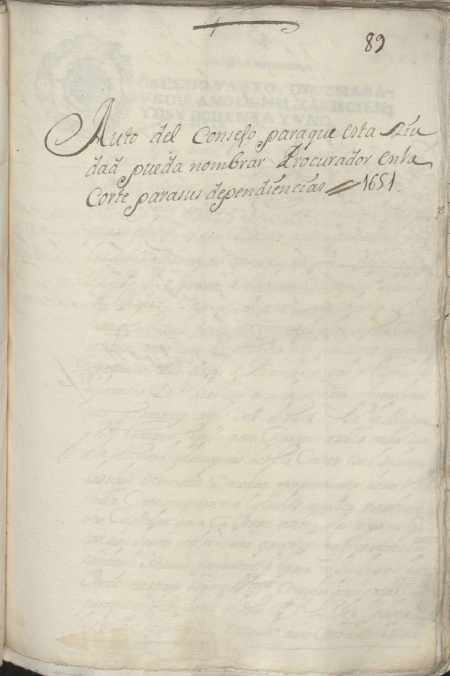 89
Auto del Consejo paraque esta Ziu
dad pueda nombrar Procurador enla
Corte parasus dependiencias 1651.